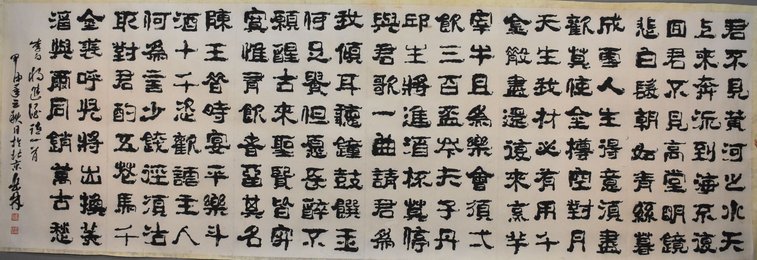 君不見黃河之水天
上來奔流到海不復
回君不見高堂明鏡
悲白髮朝如青絲暮
成雪人生得意須盡
歡莫使金樽空對月
天生我材必有用千
金散盡還復來烹羊
宰牛且為樂會須一
飲三百盃岑夫子丹
邱生將進酒杯莫停
與君歌一曲請君為
我傾耳聽鐘鼓饌玉
何足貴但願長醉不
願醒古來聖賢皆寂
寞惟有飲者留其名
陳王昔時宴平樂斗
酒十千恣歡謔主人
何為言少錢徑須沽
取對君酌五花馬千
金裘呼兒將出換美
酒與爾同銷萬古愁
書將進酒詩一首
甲申年秋日於北京